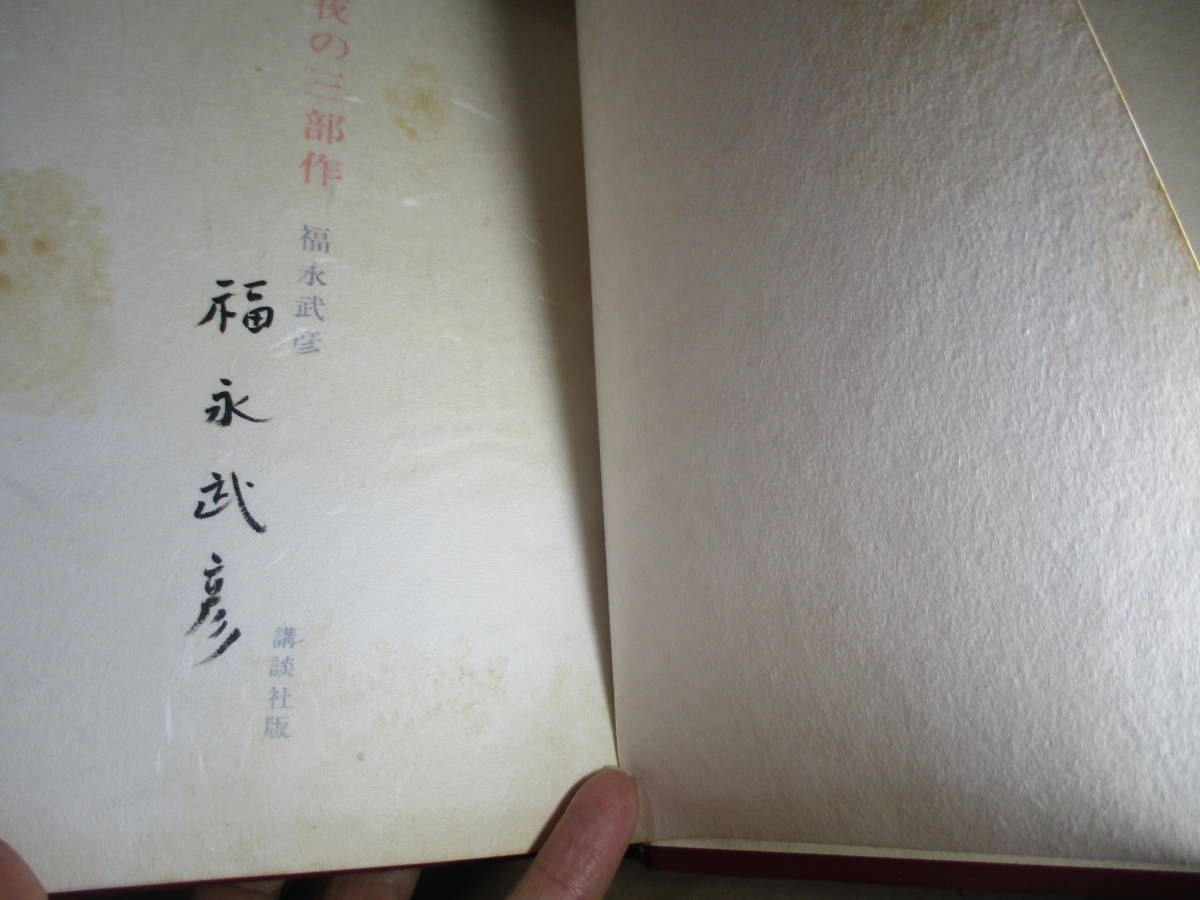 夜の三部作
福永武彦
福永武彦
講談社版